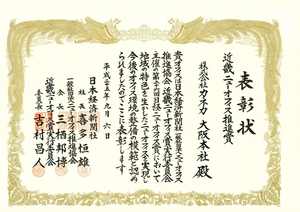 表彰状
近畿ニューオフィス推進賞
株式会社カネカ 大阪本社 殿
貴オフィスは日本経済新聞社、一般社団法人ニューオフィス
推進協会、近畿ニューオフィス賞実行委員会
主催の第二十六回日経ニューオフィス賞において
地域の特色を生かしたニューオフィスを実現し
今後のオフィス環境の整備の模範と認め
られましたのでここに表彰します
平成二十五年九月六日
日本経済新聞社
社長 喜多恒雄
一般社団法人ニューオフィス推進協会
会長 三栖邦博
近畿ニューオフィス賞実行委員会
委員長 吉村昌人